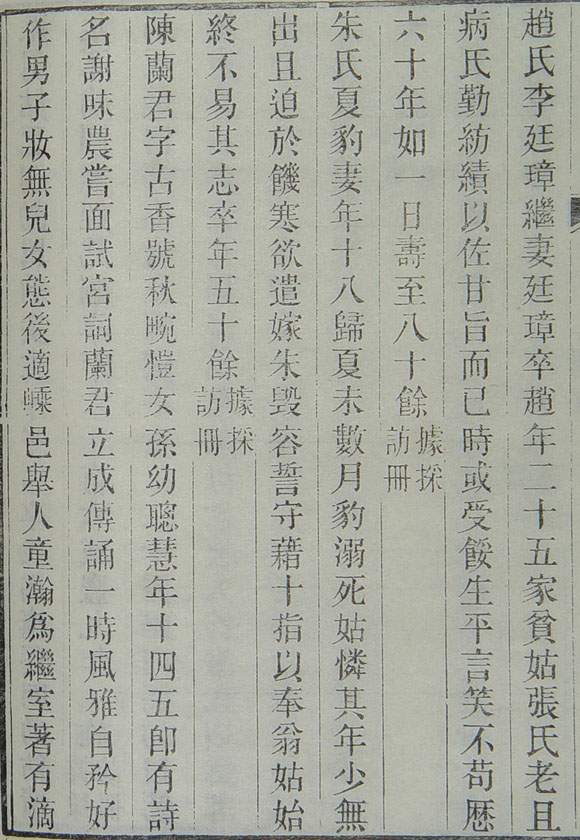 趙氏李廷璋繼妻廷璋卒趙年二十五家貧姑張氏老且
病氏勤紡績以佐甘旨而已時或受餒生平言笑不苟厯
六十年如一日壽至八十餘據採訪冊
朱氏夏豹妻年十八歸夏未數月豹溺死姑憐其年少無
出且迫於饑寒欲遣嫁朱毁容誓守藉十指以奉翁姑始
終不易其志卒年五十餘據採訪冊
陳蘭君字古香號秋畹愷女孫幼聰慧年十四五卽有詩
名謝味農嘗面試宮詞蘭君立成傳誦一時風雅自矜好
作男子妝無兒女態後適嵊邑舉人童瀚爲繼室著有滴